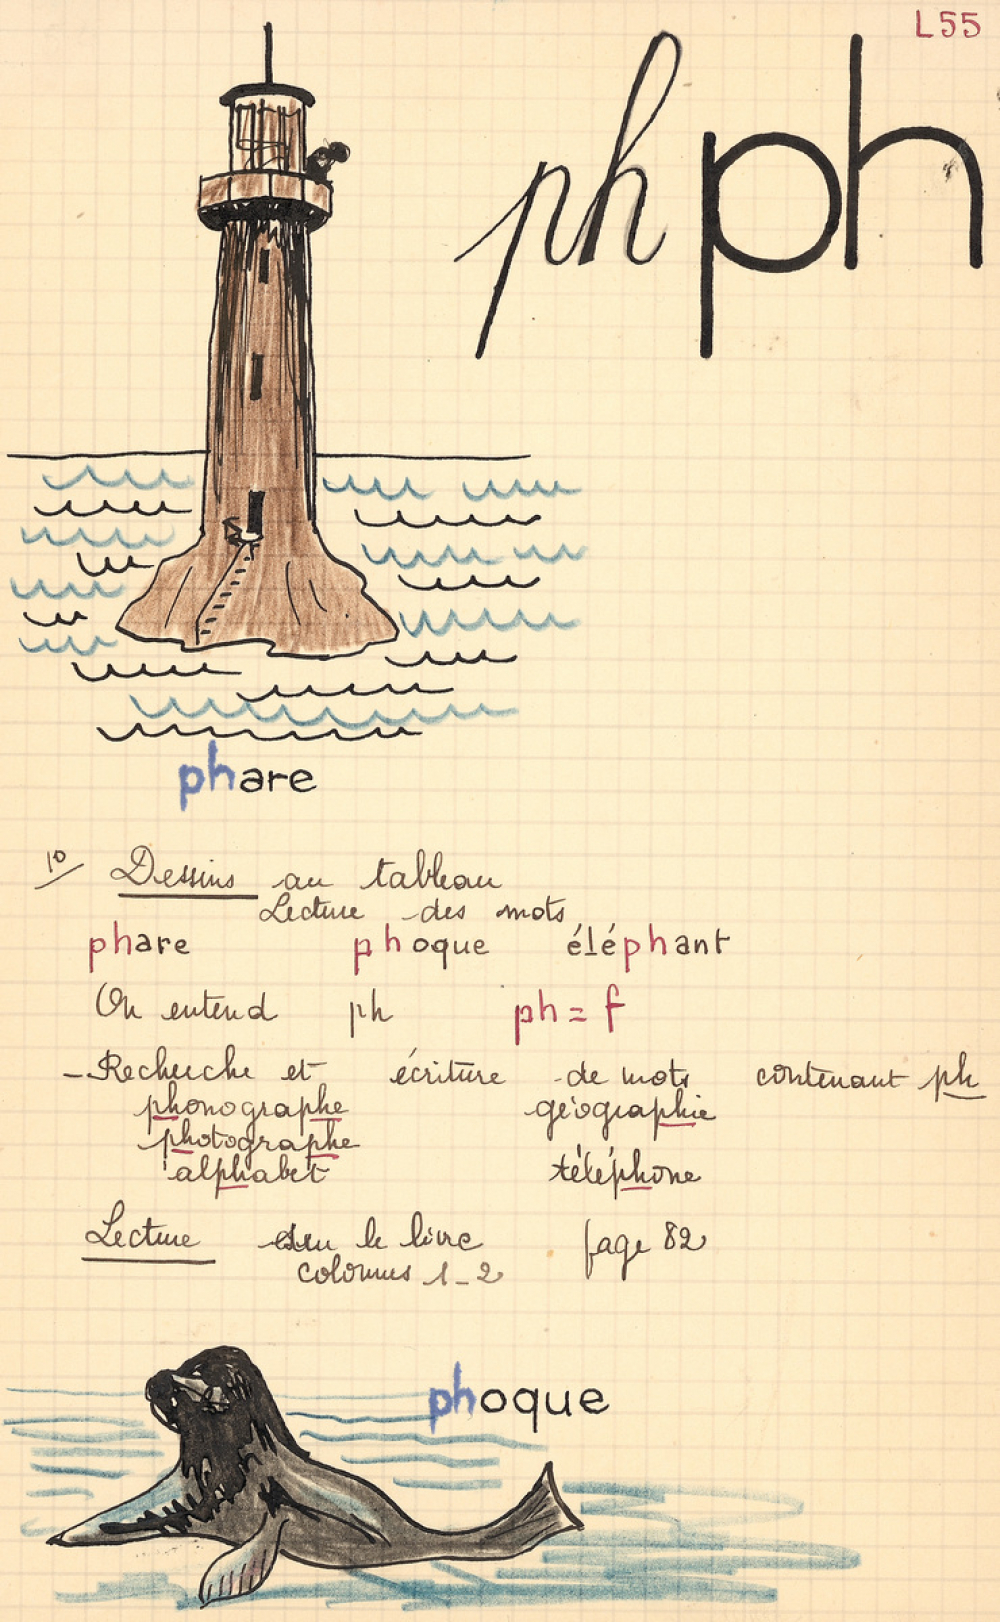 L55
ph ph
phare
1º/ Dessins au tableau
Lecture des mots
phare phoque éléphant
On entend ph ph = f
- Recherche et écriture de mots contenant ph
phonographe géographie
photographe
alphabet téléphone
Lecture sur le livre page 82
colonnes 1_2
phoque